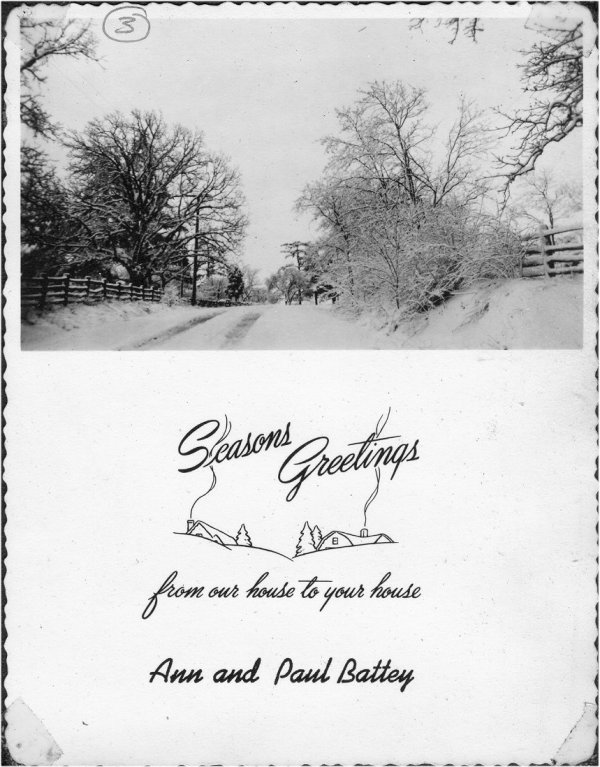 3
Seasons
Greetings
from our house to your house
Ann and Paul Battey